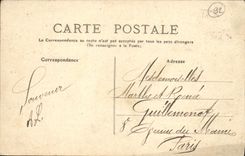 CARTE POSTALE
La Correspondance au recto n'est pas acceptée par tous les pays étrangers
(Se renseigner à la Poste)
Correspondance
Adresse
Souvenir
Mesdemoiselles
Marthe et René
Guillemonat
8
Paris